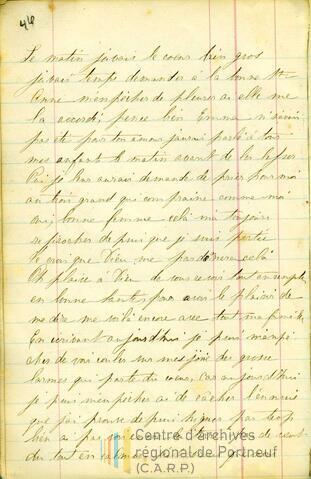 44
Le matin javais le coeur bien gros
javais temps demander à la bonne Ste
Anne mempecher de pleurer et elle me
la accordé, pence bien Emma
pas été par ton amour jaurais parlé à tous
mes enfant le matin avant de les laisser
Oui je leur aurais demandé de prier pour moi
au bon grand que comprainne comme moi
oui, bonne femme celà ma toujours
reprocher de puis que je suis partie
Je crois que Dieu me pardonnera celà
Oh plaise à Dieu de vous revoir tout ensemble
en bonne santé, pour avoir le plaisir de
me dire me voilà encore avec tout ma famille
En écrivant aujourd'hui je peus m'empé
cher de voir couler sur mes joue des grosse
larmes que parte du coeur, car aujourd'hui
je puis m'empecher de cacher l'ennuis
que jai de puis
bien
du tout
Centre d'archives
régional de Portneuf
(C.A.R.P.)